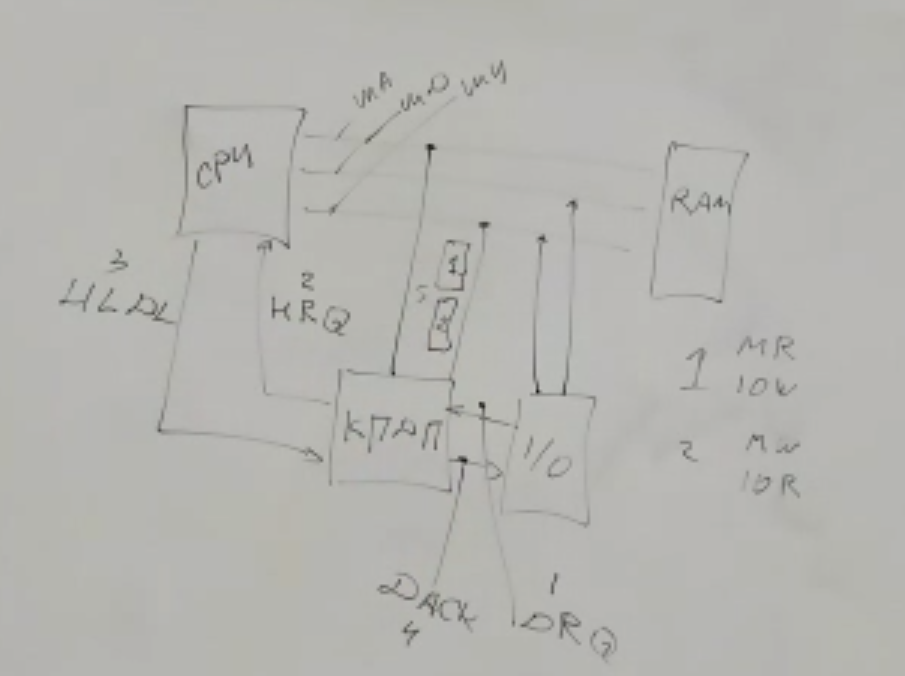 ША
ШД
ШУ
CPU
RAM
3
HLDA
2
HRQ
5
1
2
КПДП
I/O
1 MR
IOW
2 MW
IOR
DACK
4
1
DRQ